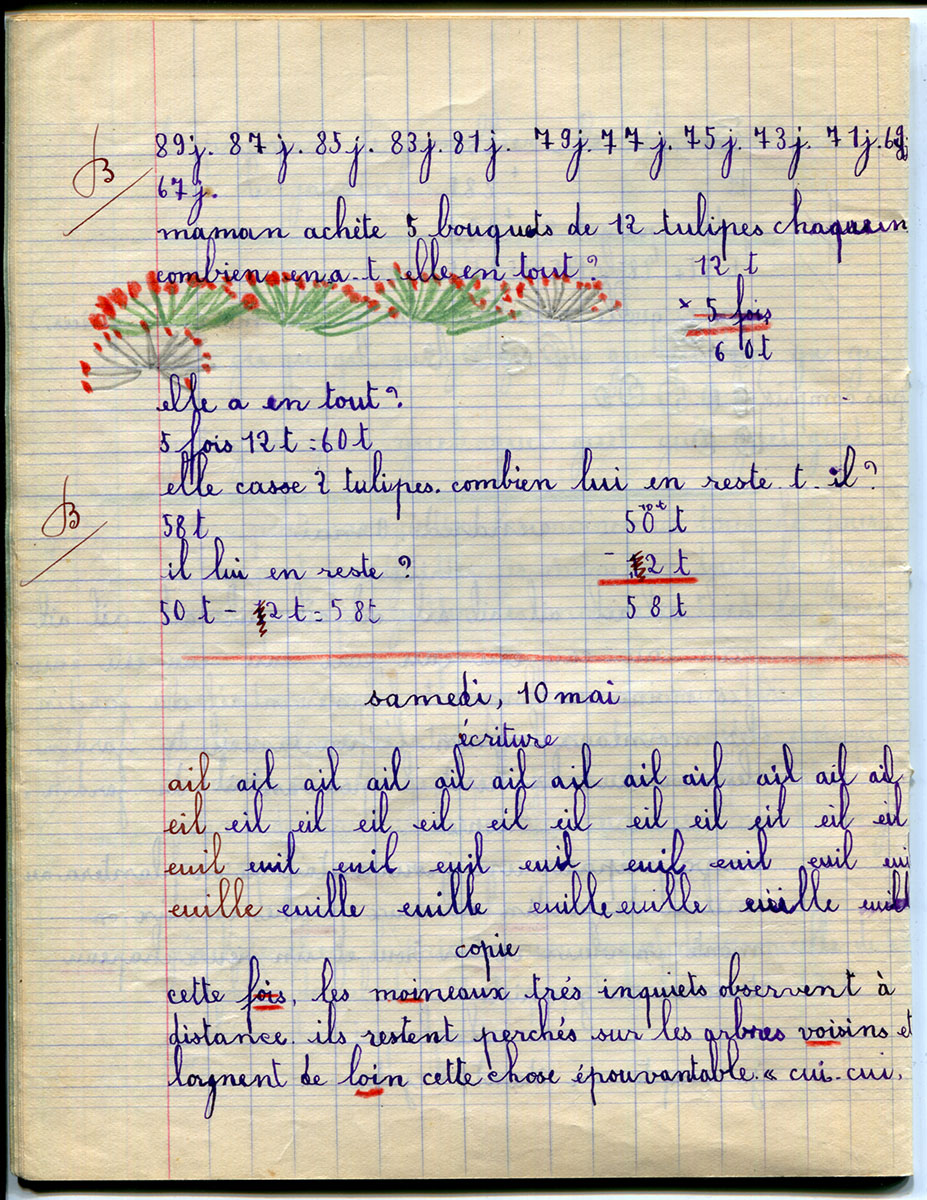 B
89j. 87j. 85j. 83j. 81j. 79j. 77j. 75j. 73j. 71j. 69j.
67j.
maman achète 5 bouquets de 12 tulipes chaquun
combien en a-t-elle en tout ?
12 t
× 5 fois
60t
elle a en tout ?
5 fois 12 t = 60 t
elle casse 2 tulipes. combien lui en reste-t-il ?
B
58 t
50 10t t
il lui en reste ?
- 2 t
50 t - 2 t = 58 t
58 t
samedi, 10 mai
écriture
ail ail ail ail ail ail ail ail ail ail ail ail
eil eil eil eil eil eil eil eil eil eil eil eil
euil euil euil euil euil euil euil euil eui
euille euille euille euille euille euille euill
copie
cette fois, les moineaux trés inquiets observent à
distance. ils restent perchés sur les arbres voisins et
lorgnent de loin cette chose épouvantable. « cui-cui,